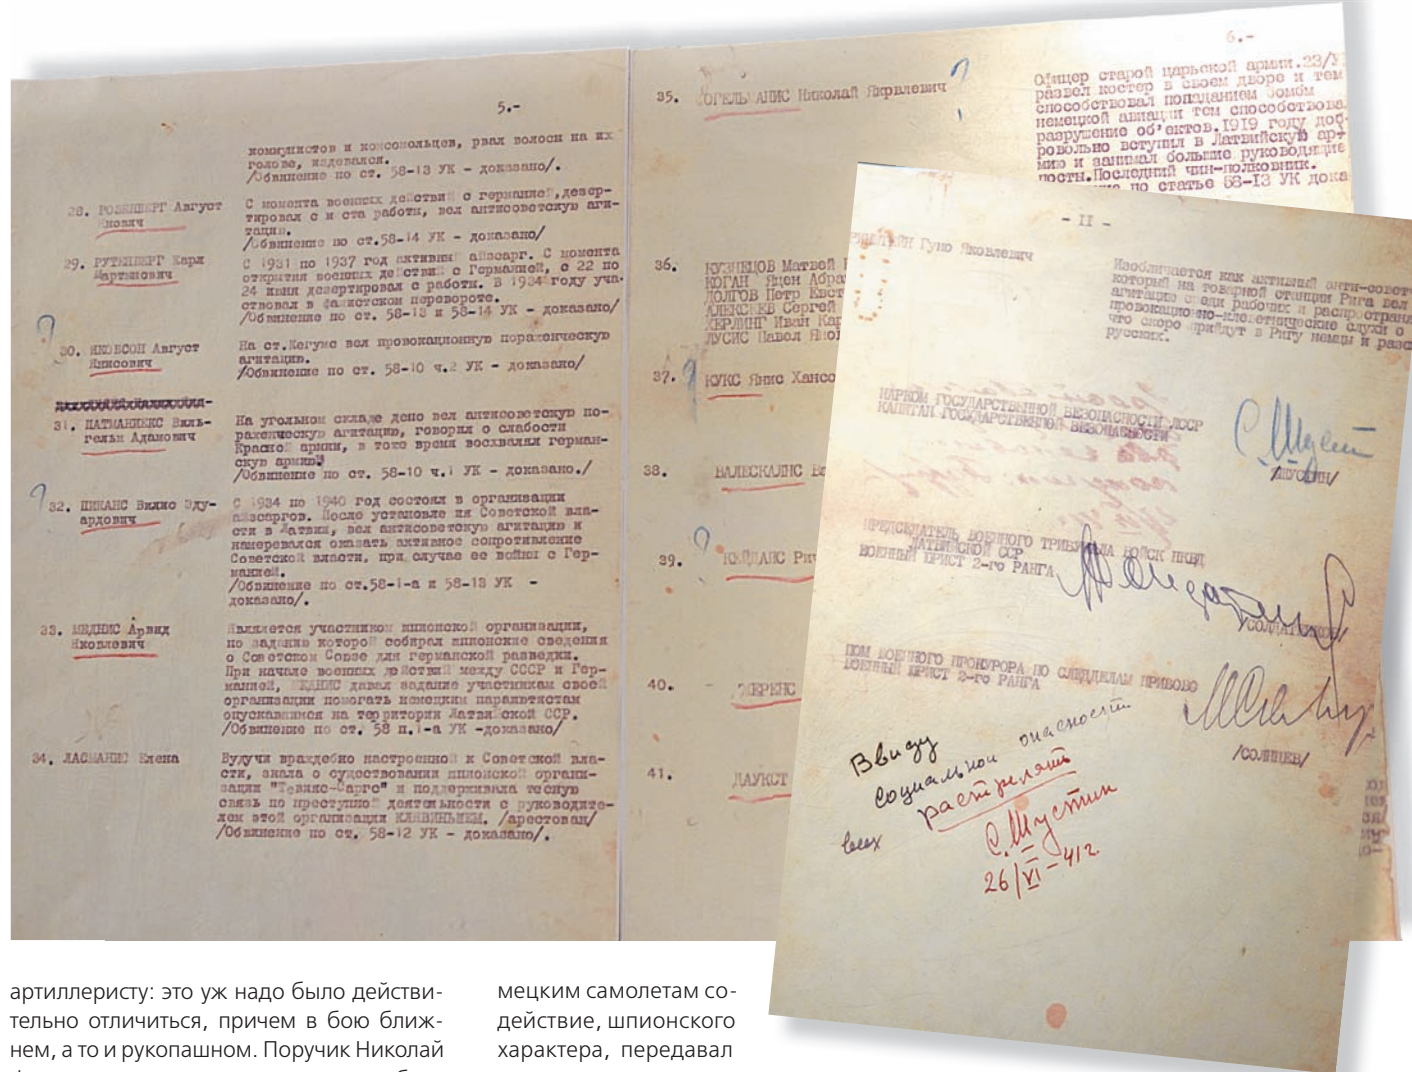 5.-
коммунистов и комсомольцев, рвал волосы на их
голове, издевался.
/Обвинение по ст. 58-13 УК - доказано/.
28. РОЗЕНБЕРГ Август
Янович
С момента военных действий с германией,дезер-
тировал с места работы, вел антисоветскую аги-
тацию.
/Обвинение по ст.58-14 УК - доказано/
29. РУТЕНБЕРГ Карл
Мартынович
С 1931 по 1937 год активный айзсарг. С момента
открытия военных действий с Германией, с 22 по
24 июня дезертировал с работы. В 1934 году уча-
ствовал в фашистском перевороте.
/Обвинение по ст. 58-13 и 58-14 УК - доказано/
?
30. ЯКОБСОН Август
Янисович
На ст.Кегумс вел провокационную пораженческую
агитацию.
/Обвинение по ст. 58-10 ч.2 УК - доказано/
31. ПАТМАНИЕКС Виль-
гельм Адамович
На угольном складе депо вел антисоветскую по-
раженческую агитацию, говорил о слабости
Красной армии, в тоже время восхвалял герман-
скую армию.
/Обвинение по ст. 58-10 ч.1 УК - доказано./
?
32. ПИКАНС Вилис Эду-
ардович
С 1934 по 1940 год состоял в организации
айзсаргов. После установления Советской вла-
сти в Латвии, вел антисоветскую агитацию и
намеревался оказать активное сопротивление
Советской власти, при случае ее войны с Гер-
манией.
/Обвинение по ст.58-1-а и 58-13 УК -
доказано/.
33. МЕДНИС Арвид
Яковлевич
Является участником шпионской организации,
по заданию которой собирал шпионские сведения
о Советском Союзе для германской разведки.
При начале военных действий между СССР и Гер-
манией, МЕДНИС давал задание участникам своей
организации помогать немецким парашютистам
опускавшимся на территории Латвийской ССР.
/Обвинение по ст. 58 п.1-а УК -доказано/
34. ЛАСМАНИС Елена
Будучи враждебно настроенной к Советской вла-
сти, знала о существовании шпионской органи-
зации "Тевияс-Саргс" и поддерживала тесную
связь по преступной деятельности с руководите-
лем этой организации КЛЯВИНЬЕМ. /арестован/
/Обвинение по ст. 58-12 УК - доказано/.
6.-
35. ОГЕЛЬМАНИС Николай Якрвлевич
?
Офицер старой царьской армии.23/У
развел костер в своем дворе и тем
способствовал попаданию бомбы
немецкой авиации тем способствова
разрушение об'ектов.1919 году доб-
ровольно вступил в Латвийскую ар-
мию и занимал большие руководящие
посты.Последний чин-полковник.
по статье 58-13 УК дока
36. КУЗНЕЦОВ Матвей
КОГАН Яцен Абра
ДОЛГОВ Петр Евст
АЛЕКСЕЕВ Сергей
ХЕРЛИНГ Иван Кар
ЛУСИС Павел Яко
37. ?
КУКС Янис Хансо
38. ВАЛЕСКАЛНС
39. ?
КЕЙДАНС Рич
40. -
41. ДАУКСТ
- II -
Гуно Яковлевич
Изобличается как активный анти-совет
который на товарной станции Рига вел
агитацию среди рабочих и распростран
провокационно-клеветнические слухи о
что скоро прийдут в Ригу немцы и разо
русских.
НАРКОМ ГОСУДАРСТВЕННОЙ БЕЗОПАСНОСТИ ЛССР
КАПИТАН ГОСУДАРСТВЕННОЙ БЕЗОПАСНОСТИ
С. Шустин
/ШУСТИН/
ПРЕДСЕДАТЕЛЬ ВОЕННОГО ТРИБУНАЛА ВОЙСК НКВД
ЛАТВИЙСКОЙ ССР
ВОЕННЫЙ ЮРИСТ 2-го РАНГА
/СОЛДАТЕНКОВ/
ПОМ ВОЕННОГО ПРОКУРОРА ПО СЛЕДДЕЛАМ ПРИБОВО
ВОЕННЫЙ ЮРИСТ 2-го РАНГА
/СОЛНЦЕВ/
Ввиду
социальной опасности
расстрелять
всех
С. Шустин
26/VI-41г.
артиллеристу: это уж надо было действи-
тельно отличиться, причем в бою ближ-
нем, а то и рукопашном. Поручик Николай
мецким самолетам со-
действие, шпионского
характера, передавал